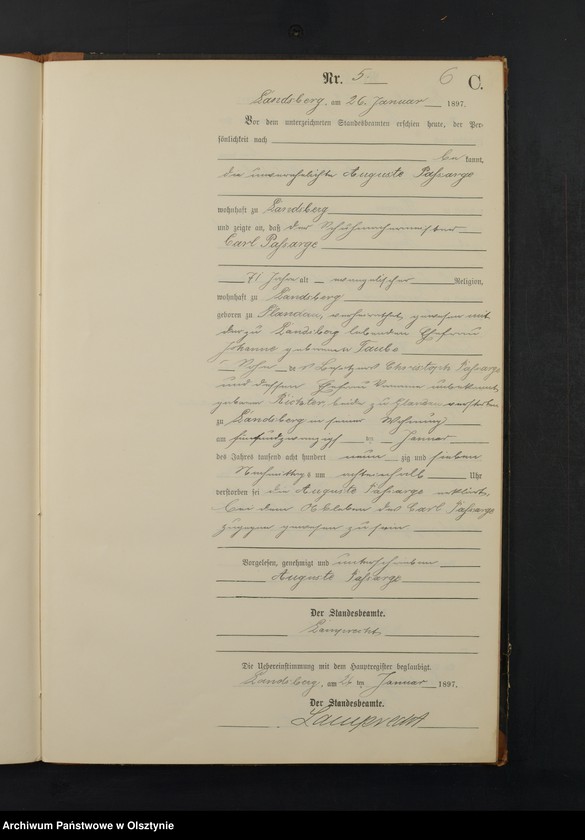 Nr. 5. 6 C.
Landsberg, am 26. Januar 1897.
Vor dem unterzeichneten Standesbeamten erschien heute, der Per-
sönlichkeit nach
be kannt,
die unverehelichte Auguste Paßarge
wohnhaft zu Landsberg
und zeigte an, daß der Schuhmachermeister
Carl Paßarge
71 Jahre alt evangelischer Religion,
wohnhaft zu Landsberg
geboren zu Glandau, verheirathet gewesen mit
der zu Landsberg lebenden Ehefrau
geborenen Taube
Sohn des Besitzers Christoph Paßarge
und dessen Ehefrau Vorname unbekannt,
geborene Richter, beide zu Glandau verstorben
zu Landsberg in seiner Wohnung
am fünfundzwanzigsten Januar
des Jahres tausend acht hundert neun zig und sieben
Nachmittags um achteinhalb Uhr
verstorben sei die Auguste Paßarge erklärte,
bei dem Ableben des Carl Paßarge
zugegen gewesen zu sein
Vorgelesen, genehmigt und unterschrieben
Auguste Paßarge
Der Standesbeamte.
Lamprecht
Die Uebereinstimmung mit dem Hauptregister beglaubigt.
Landsberg, am 26 ten Januar 1897.
Der Standesbeamte.
Lamprecht
Archiwum Państwowe w Olsztynie